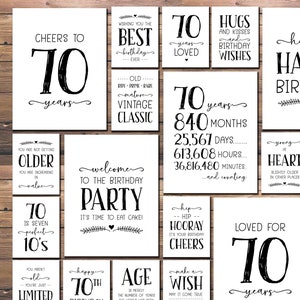 CHEERS TO
70
years
WISHING YOU THE
BEST
birthday
EVER
70
YEARS
LOVED
HUGS
AND KISSES
AND
BIRTHDAY
WISHES
OLD
MATURE
VINTAGE
CLASSIC
70 years
840 MONTHS
25,567 DAYS......
613,608 HOURS...
36,816,480 MINUTES
...and counting
YOU ARE NOT GETTING
OLDER
YOU ARE INCREASING
IN value
welcome
TO THE BIRTHDAY
PARTY
IT'S TIME TO EAT CAKE!
young
AT
HEART
SLIGHTLY OLDER
IN OTHER PLACES
70
IS SEVEN
perfect
10's
HIP
HIP
HOORAY
IT'S YOUR BIRTHDAY
CHEERS
LOVED FOR
70
years
YOU AREN'T
old
YOU'RE JUST
LIMITED
happy
70th
BIRTHDAY
AGE
IS MERELY
THE NUMBER OF YEARS
MAKE A
WISH